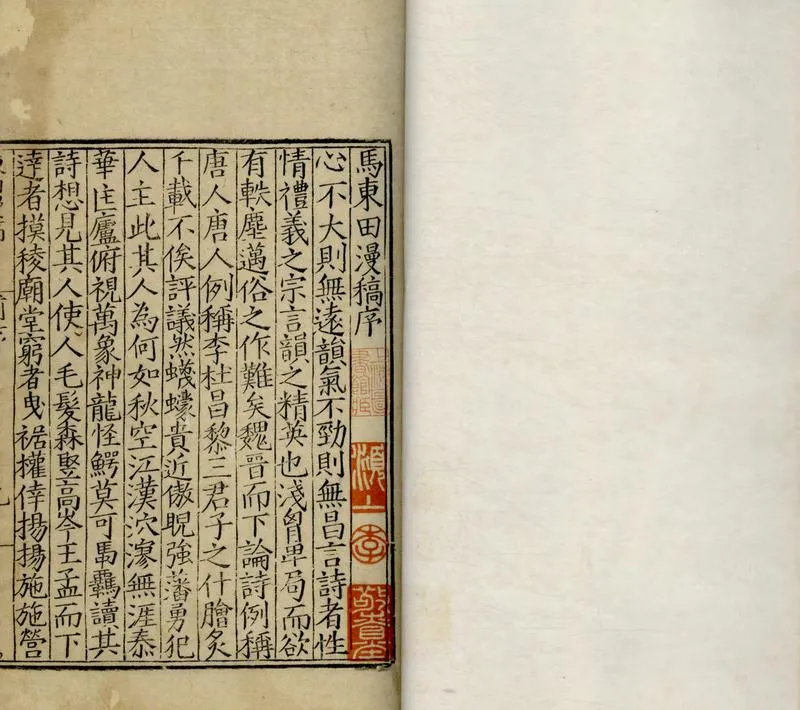 馬東田漫稿序
心不大則無遠韻氣不勁則無昌言詩者性
情禮義之宗言韻之精英也淺胷卑局而欲
有軼塵邁俗之作難矣魏晉而下論詩例稱
唐人唐人例稱李杜昌黎三君子之什膾炙
千載不俟評議然蠛蠓貴近傲睨強藩勇犯
人主此其人為何如秋空江漢泬漻無涯泰
華住廬俯視萬象神龍怪鰐莫可馽羈讀其
詩想見其人使人毛髮森竪高岑王孟而下
達者摸稜廟堂窮者曳裾權倖揚揚施施營